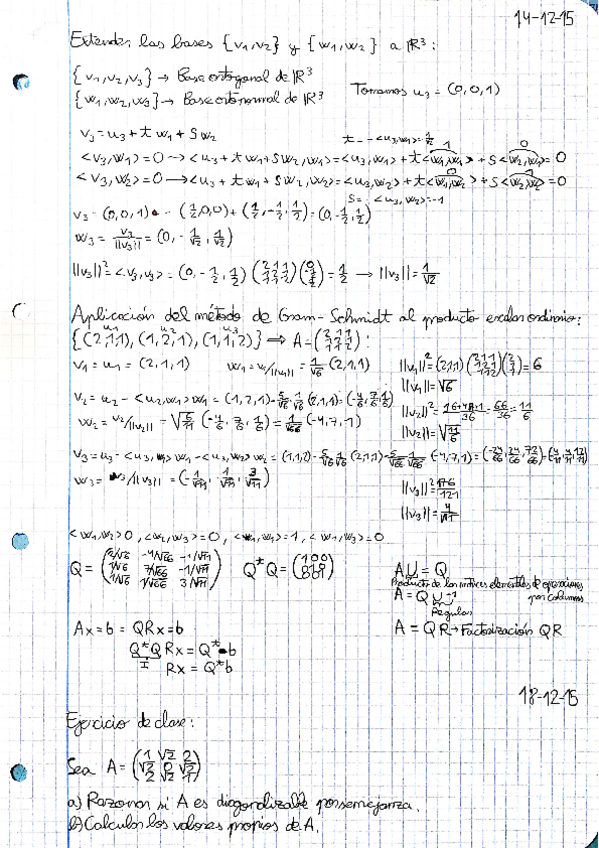 14-12-15
Extender las bases {v₁,v₂} y {w₁,w₂} a ℝ³:
{v₁,v₂,v₃} → Base ortogonal de ℝ³
{w₁,w₂,w₃} → Base ortonormal de ℝ³ Tomamos u₃ = (0,0,1)
v₃ = u₃ + t w₁ + s w₂ t = -<u₃,w₁> = 1/2
<v₃,w₁> = 0 → <u₃ + t w₁ + s w₂, w₁> = <u₃,w₁> + t<w₁,w₁> + s<w₂,w₁> = 0
<v₃,w₂> = 0 → <u₃ + t w₁ + s w₂, w₂> = <u₃,w₂> + t<w₁,w₂> + s<w₂,w₂> = 0
s = -<u₃,w₂> = -1
v₃ = (0,0,1) - (1/2,0,0) + (1/2,-1/2,1/2) = (0,-1/2,1/2)
w₃ = v₃/||v₃|| = (0,-1/√2,1/√2)
||v₃||² = <v₃,v₃> = (0,-1/2,1/2) = 1/2 → ||v₃|| = 1/√2
Aplicación del método de Gram-Schmidt al producto escalar ordinario:
{(2,1,1), (1,2,1), (1,1,2)} ⇒ A =
v₁ = u₁ = (2,1,1) w₁ = v₁/||v₁|| = 1/√6 (2,1,1) ||v₁||² = (2,1,1) = 6
||v₁|| = √6
v₂ = u₂ - <u₂,w₁>w₁ = (1,2,1) - 5/√6 · 1/√6 (2,1,1) = (-4/6,7/6,1/6) ||v₂||² = = 66/36 = 11/6
w₂ = v₂/||v₂|| = √6/11 (-4/6,7/6,1/6) = 1/√66 (-4,7,1) ||v₂|| = √11/6
v₃ = u₃ - <u₃,w₁>w₁ - <u₃,w₂>w₂ = (1,1,2) - 5/√6 1/√6 (2,1,1) - 5/√66 1/√66 (-4,7,1) =
w₃ = v₃/||v₃|| = (-1/√11, -1/√11, 3/√11) ||v₃||² =
||v₃|| = 4/√11
<w₁,w₂> 0, <w₂,w₃> = 0, <w₁,w₁> = 1, <w₁,w₃> = 0
Q = (2/√6 -4/√66 -1/√11
1/√6 7/√66 -1/√11
1/√6 1/√66 3/√11) Q*Q = AU = Q
Producto de las matrices elementales de operaciones por columnas
A = QU⁻¹
Regular
A = QR → Factorización QR
Ax = b = QRx = b
Q*QRx = Q*b
I
Rx = Q*b
18-12-15
Ejercicio de clase:
Sea A = (1 √2 2
√2 0 √2
2 √2 1)
a) Razonar si A es diagonalizable por semejanza.
b) Calcular los valores propios de A.